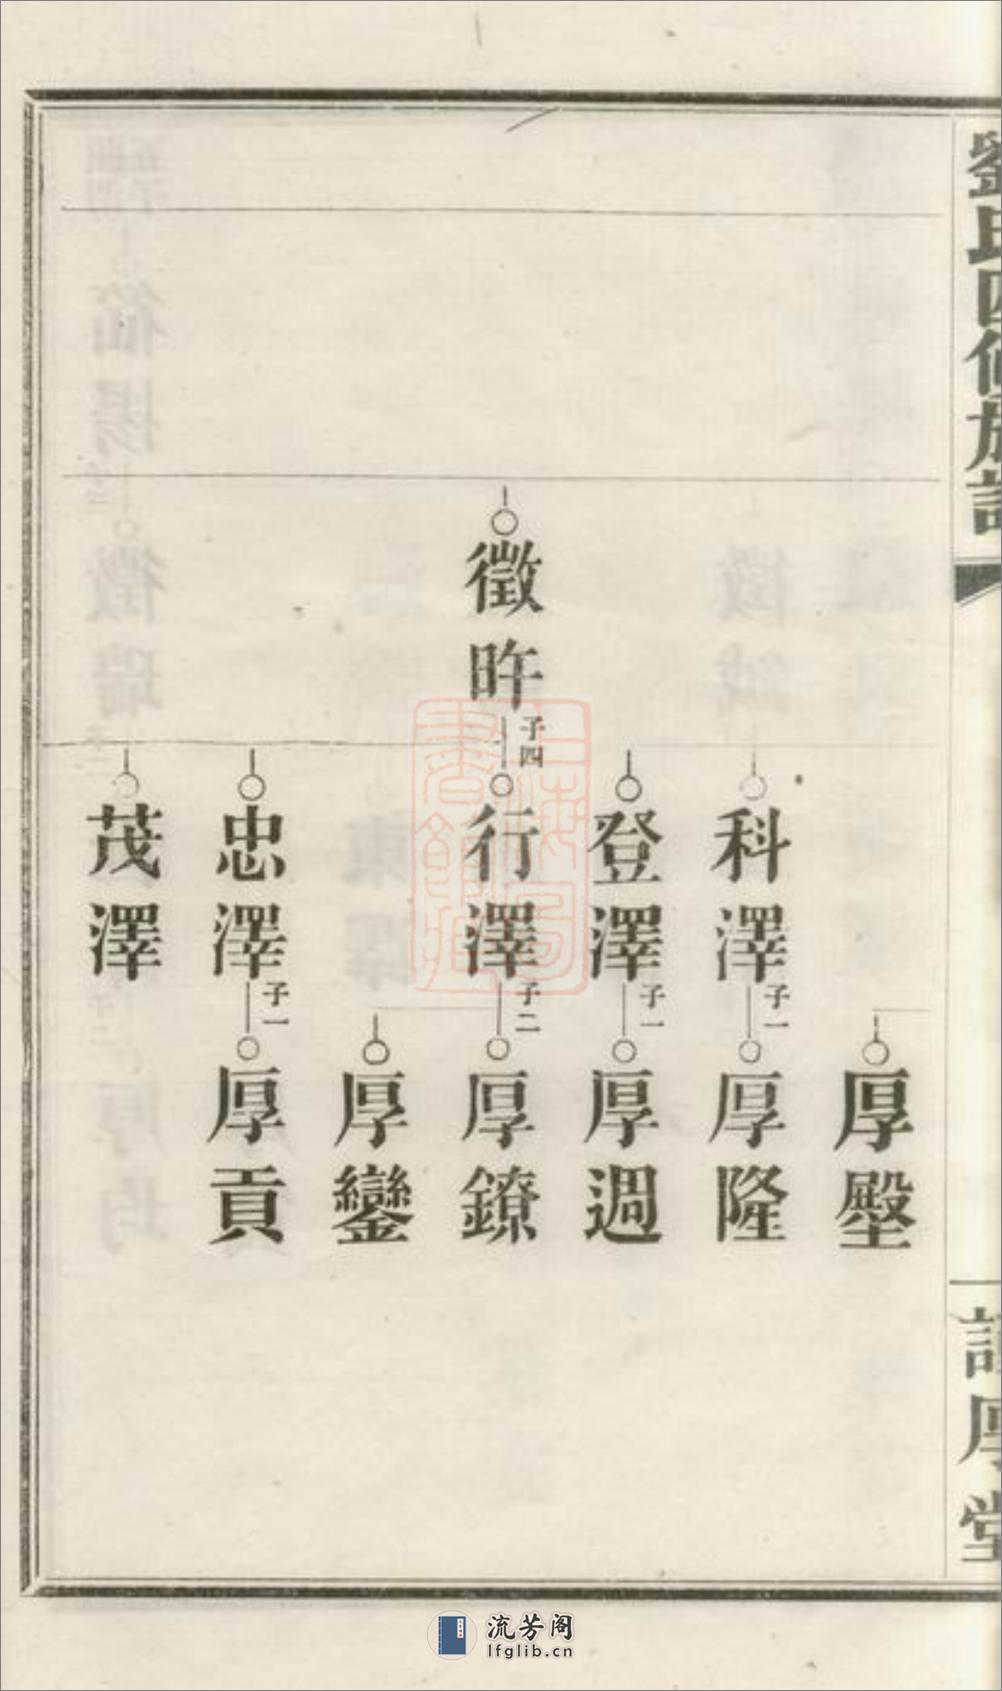 劉氏四修族譜
厚堂
厚壂
科澤
子一
厚隆
登澤
子一
厚週
徵旿
子四
行澤
子二
厚鐐
厚鑾
忠澤
子一
厚貢
茂澤
上海圖書館藏
流芳阁
lfglib.cn